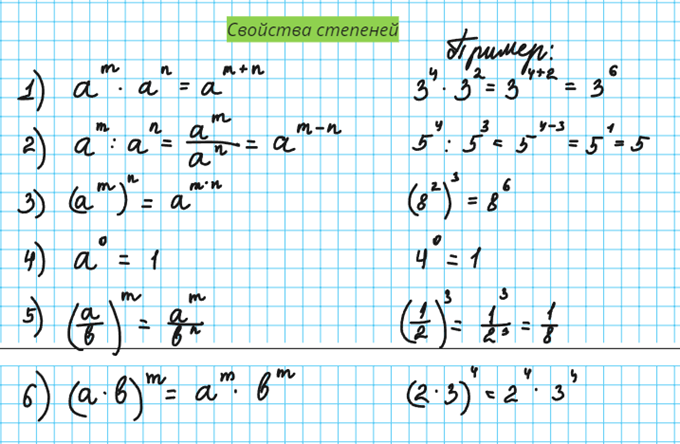 Свойства степеней
Пример:
1) a^m · a^n = a^(m+n) 3^4 · 3^2 = 3^(4+2) = 3^6
2) a^m : a^n = a^m/a^n = a^(m-n) 5^4 : 5^3 = 5^(4-3) = 5^1 = 5
3) (a^m)^n = a^(m·n) (8^2)^3 = 8^6
4) a^0 = 1 4^0 = 1
5) (a/b)^m = a^m/b^n (1/2)^3 = 1^3/2^3 = 1/8
6) (a · b)^m = a^m · b^m (2 · 3)^4 = 2^4 · 3^4